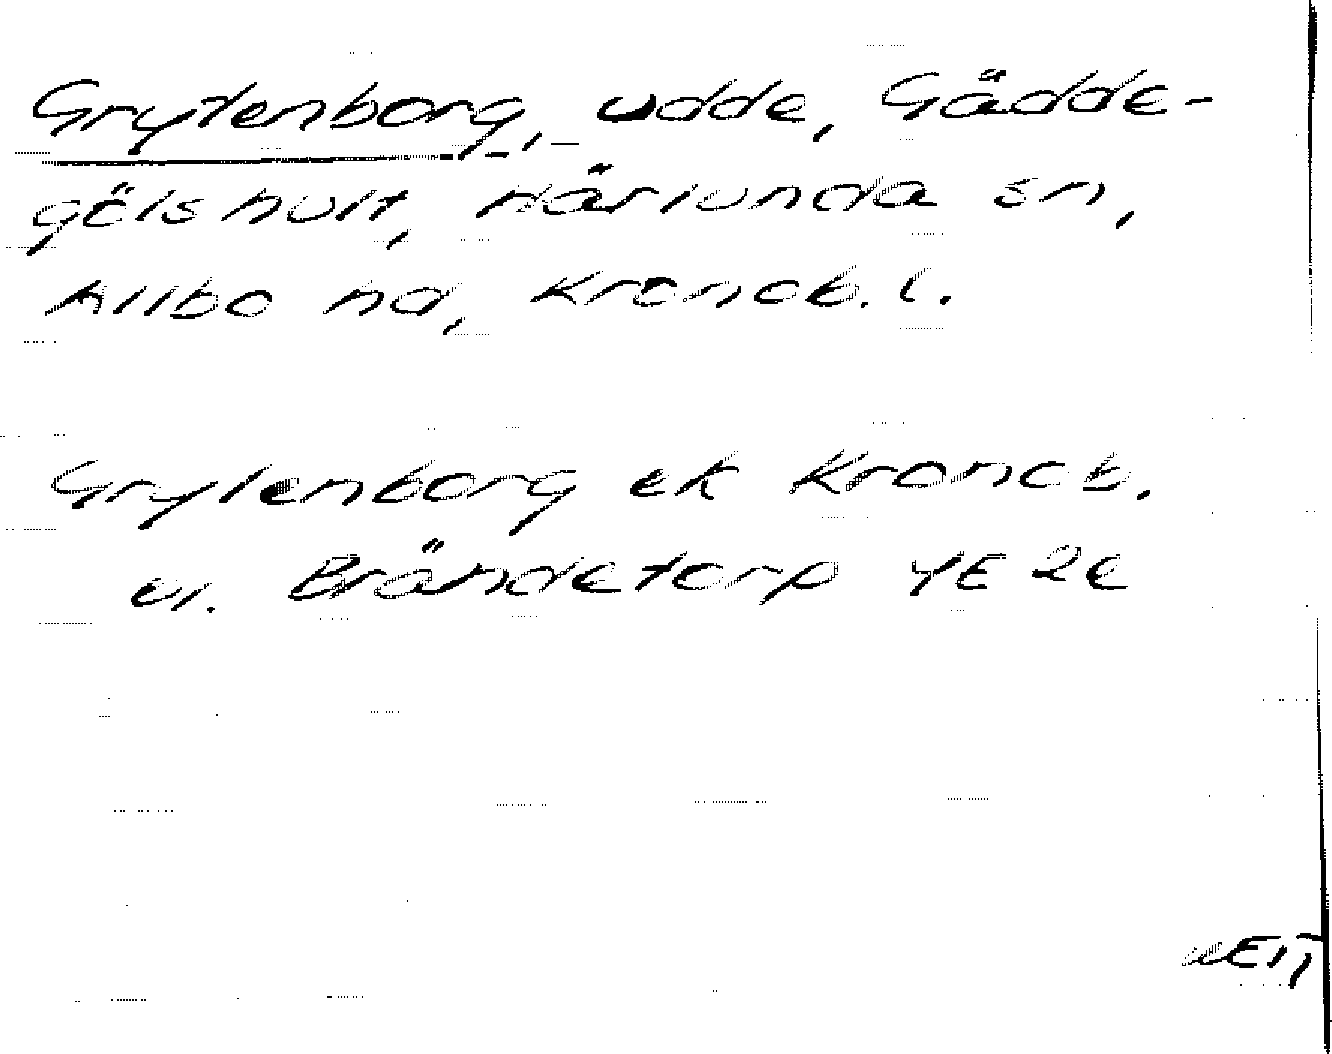 Grytenborg, udde, Gädde-
gölshult, Härlunda sn,
Allbo hd, Kronob. l.
Grytenborg ek Kronob.
bl. Brändetorp 4E 2e